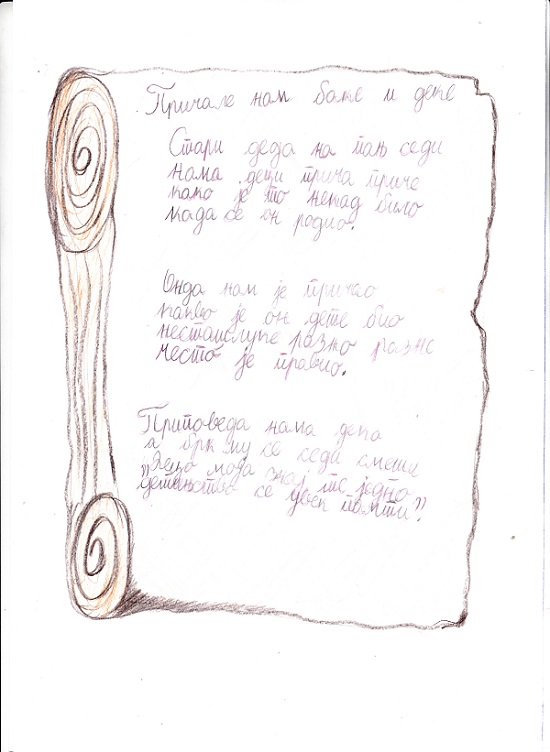 Причале нам баке и деке
Стари деда на пањ седи
нама деци прича приче
како је то некад било
када се он родио.
Онда нам је причао
какво је он дете био
несташлуке разно разне
често је правио.
Приповеда нама дека
а брк му се седи смеши
„Децо моја знај те једно
детињство се увек памти".